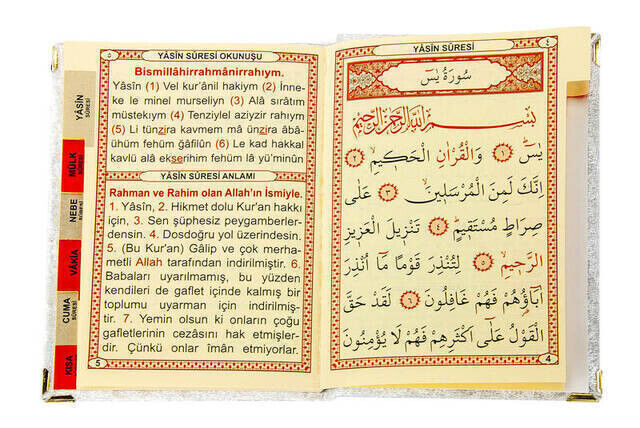 YÂSİN SÛRESİ
MÜLK
SÛRESİ
NEBE
SÛRESİ
VÂKIA
CUMA
SÛRESİ
KISA
٥
YÂSİN SÛRESİ OKUNUŞU
Bismillâhirrahmânirrahıym.
Yâsîn (1) Vel kur'ânil hakiym (2) İnne-
ke le minel murseliyn (3) Alâ sırâtım
müstekıym (4) Tenziylel aziyzir rahıym
(5) Li tünzira kavmem mâ ünzira âbâ-
ühüm fehüm ğâfilûn (6) Le kad hakkal
kavlü alâ ekserihim fehüm lâ yü'minûn
YÂSİN SÛRESİ ANLAMI
Rahman ve Rahim olan Allah'ın İsmiyle.
1. Yâsîn, 2. Hikmet dolu Kur'an hakkı
için, 3. Sen şüphesiz peygamberler-
densin. 4. Dosdoğru yol üzerindesin.
5. (Bu Kur'an) Gâlip ve çok merha-
metli Allah tarafından indirilmiştir. 6.
Babaları uyarılmamış, bu yüzden
kendileri de gaflet içinde kalmış bir
toplumu uyarman için indirilmiş-
tir. 7. Yemin olsun ki onların çoğu
gafletlerinin cezâsını hak etmişler-
dir. Çünkü onlar îmân etmiyorlar.
5
YÂSİN SÛRESİ
٤
سُورَةُ يٰسٓ
بِسْمِ اللّٰهِ الرَّحْمٰنِ الرَّحِيمِ
يٰسٓ ﴿١﴾ وَالْقُرْاٰنِ الْحَكِيمِ ﴿٢﴾
اِنَّكَ لَمِنَ الْمُرْسَلِينَ ﴿٣﴾ عَلٰى
صِرَاطٍ مُسْتَقِيمٍ ﴿٤﴾ تَنْزِيلَ الْعَزِيزِ
الرَّحِيمِ ﴿٥﴾ لِتُنْذِرَ قَوْمًا مَٓا اُنْذِرَ
اٰبَٓاؤُهُمْ فَهُمْ غَافِلُونَ ﴿٦﴾ لَقَدْ حَقَّ
الْقَوْلُ عَلٰٓى اَكْثَرِهِمْ فَهُمْ لَا يُؤْمِنُونَ
4